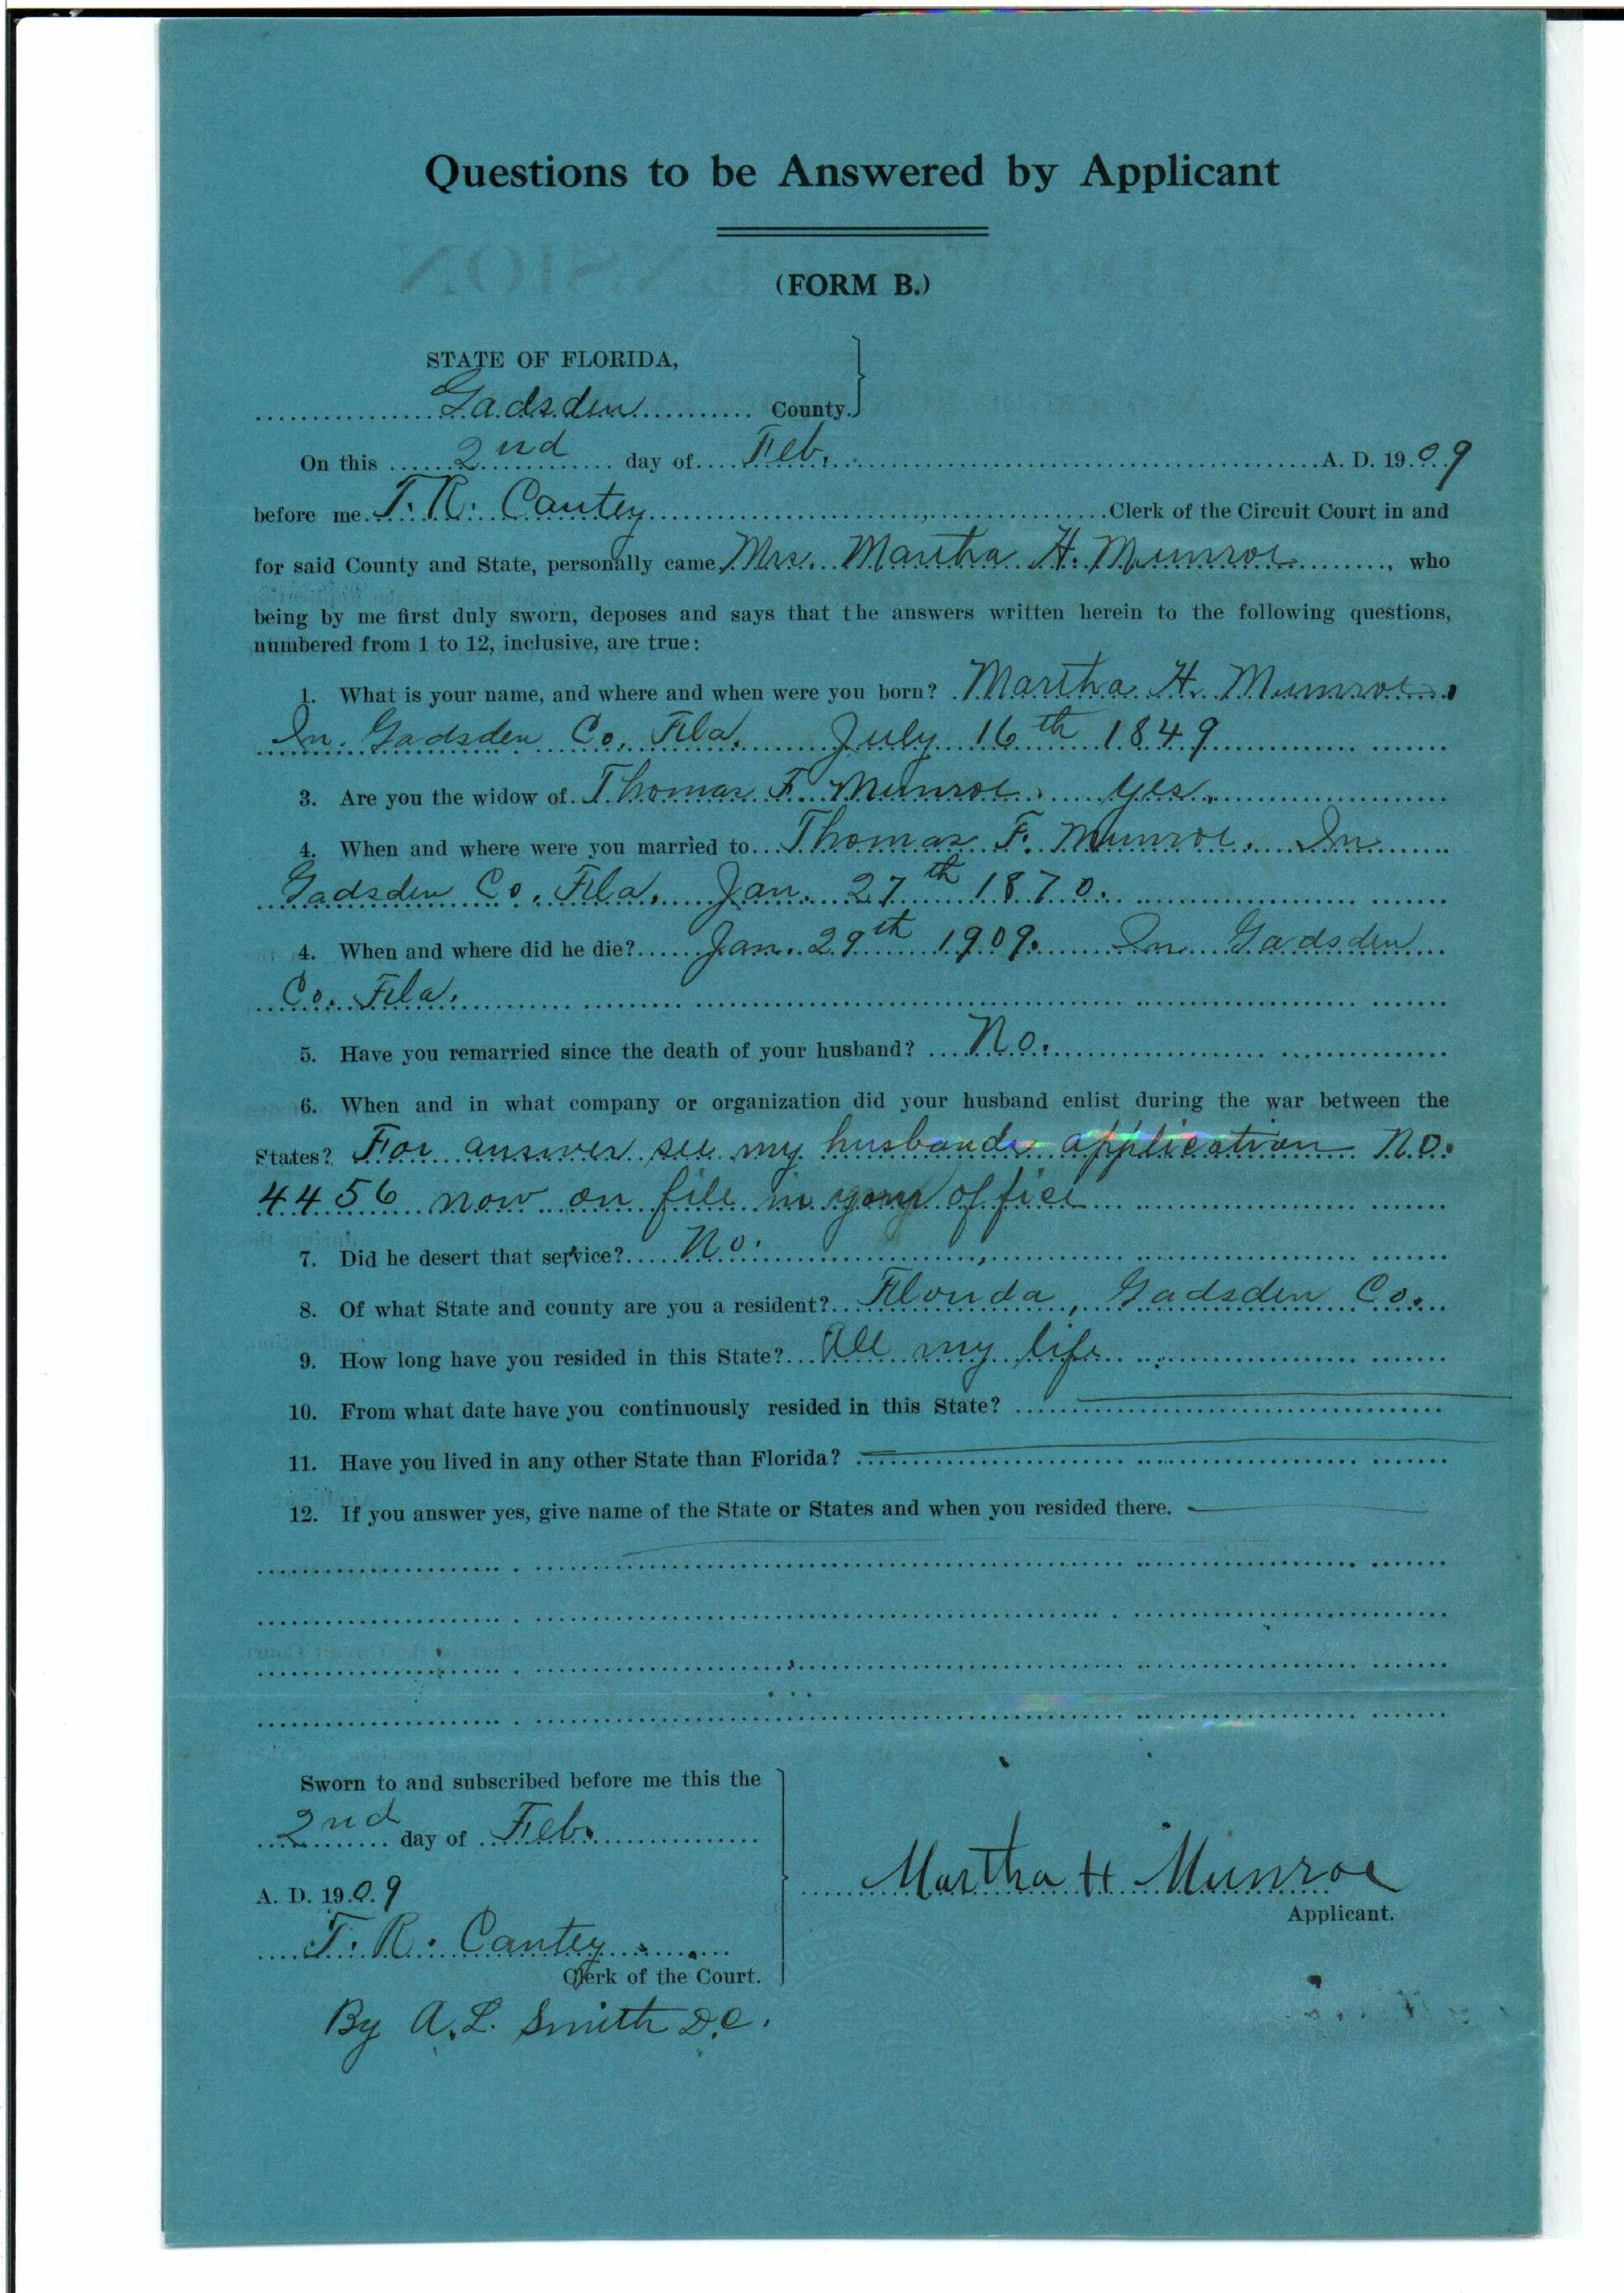 Questions to be Answered by Applicant
(FORM B.)
STATE OF FLORIDA,
Gadsden County.
On this 2nd day of Feb. A. D. 1909
before me T. R. Cantey Clerk of the Circuit Court in and
for said County and State, personally came Mrs. Martha H. Munroe, who
being by me first duly sworn, deposes and says that the answers written herein to the following questions,
numbered from 1 to 12, inclusive, are true:
1. What is your name, and where and when were you born? Martha H. Munroe.
In Gadsden Co. Fla. July 16th 1849
3. Are you the widow of Thomas F. Munroe. Yes.
4. When and where were you married to Thomas F. Munroe. In
Gadsden Co. Fla. Jan. 27th 1870.
4. When and where did he die? Jan. 29th 1909. In Gadsden
Co. Fla.
5. Have you remarried since the death of your husband? No.
6. When and in what company or organization did your husband enlist during the war between the
States? For answer see my husbands application No.
4456 now on file in your office
7. Did he desert that service? No.
8. Of what State and county are you a resident? Florida, Gadsden Co.
9. How long have you resided in this State? All my life
10. From what date have you continuously resided in this State?
11. Have you lived in any other State than Florida?
12. If you answer yes, give name of the State or States and when you resided there.
Sworn to and subscribed before me this the
2nd day of Feb.
A. D. 1909
T. R. Cantey
Clerk of the Court.
By A. L. Smith D.C.
Martha H Munroe
Applicant.